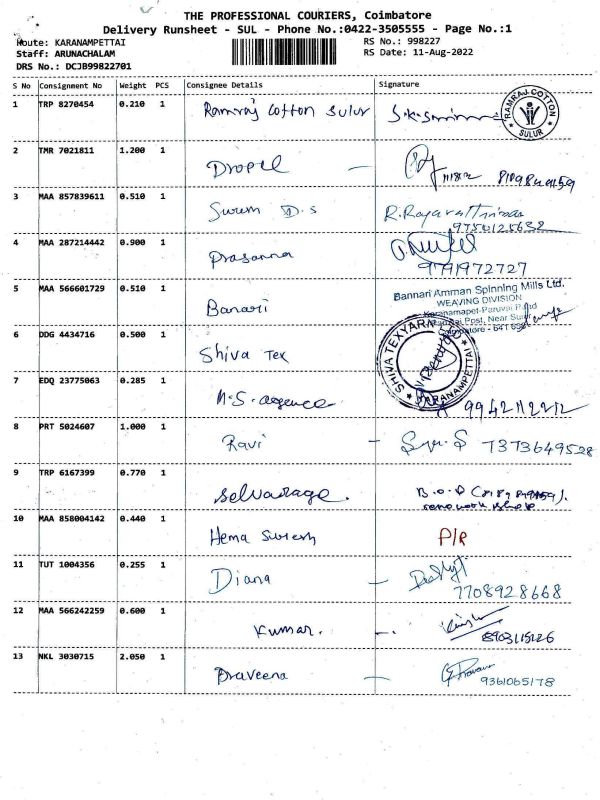 THE PROFESSIONAL COURIERS, Coimbatore
Delivery Runsheet - SUL - Phone No.:0422-3505555 - Page No.:1
Route: KARANAMPETTAI RS No.: 998227
Staff: ARUNACHALAM RS Date: 11-Aug-2022
DRS No.: DCJB99822701
S No Consignment No Weight PCS Consignee Details Signature
1 TRP 8270454 0.210 1 Ramraj Cotton Sulur RAMRAJ COTTON SULUR
2 TMR 7021811 1.200 1 Dropel -
3 MAA 857839611 0.510 1 D.S
9750125632
4 MAA 287214442 0.900 1 Prasanna
9791972727
5 MAA 566601729 0.510 1 Banari
Bannari Amman Spinning Mills Ltd.
WEAVING DIVISION
Post, Near
6 DDG 4434716 0.500 1 Shiva Tex
SHIVA TEXYARN LTD KARANAMPETTAI
7 EDQ 23775063 0.285 1 M.S. agence
8 PRT 5024607 1.000 1 Ravi - 7373649528
9 TRP 6167399 0.770 1 Selvarage.
10 MAA 858004142 0.440 1 Hema Suresh P/R
11 TUT 1004356 0.255 1 Diana -
7708928668
12 MAA 566242259 0.600 1 Kumar. -
8903115126
13 NKL 3030715 2.050 1 Praveena -
9361065178